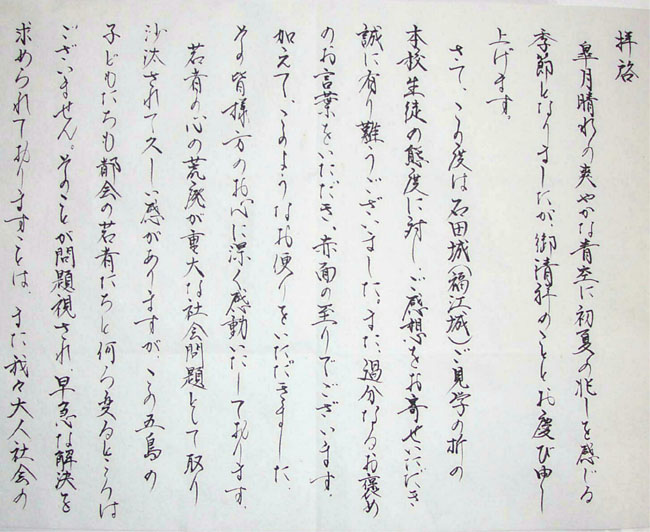 拝啓
皐月晴れの爽やかな青空に初夏の兆しを感じる
季節となりましたが、御清祥のこととお慶び申し
上げます。
さて、この度は石田城(福江城)ご見学の折の
本校生徒の態度に対し、ご感想をお寄せいただき
誠に有り難うございました。また、過分なるお褒め
のお言葉をいただき、赤面の至りでございます。
加えて、このようなお便りをいただきました
その皆様方のお心に深く感動いたしております。
若者の心の荒廃が重大な社会問題として取り
沙汰されて久しい感がありますが、この五島の
子どもたちも都会の若者たちと何ら変るところは
ございません。そのことが問題視され、早急な解決を
求められておりますことは、また我々大人社会の